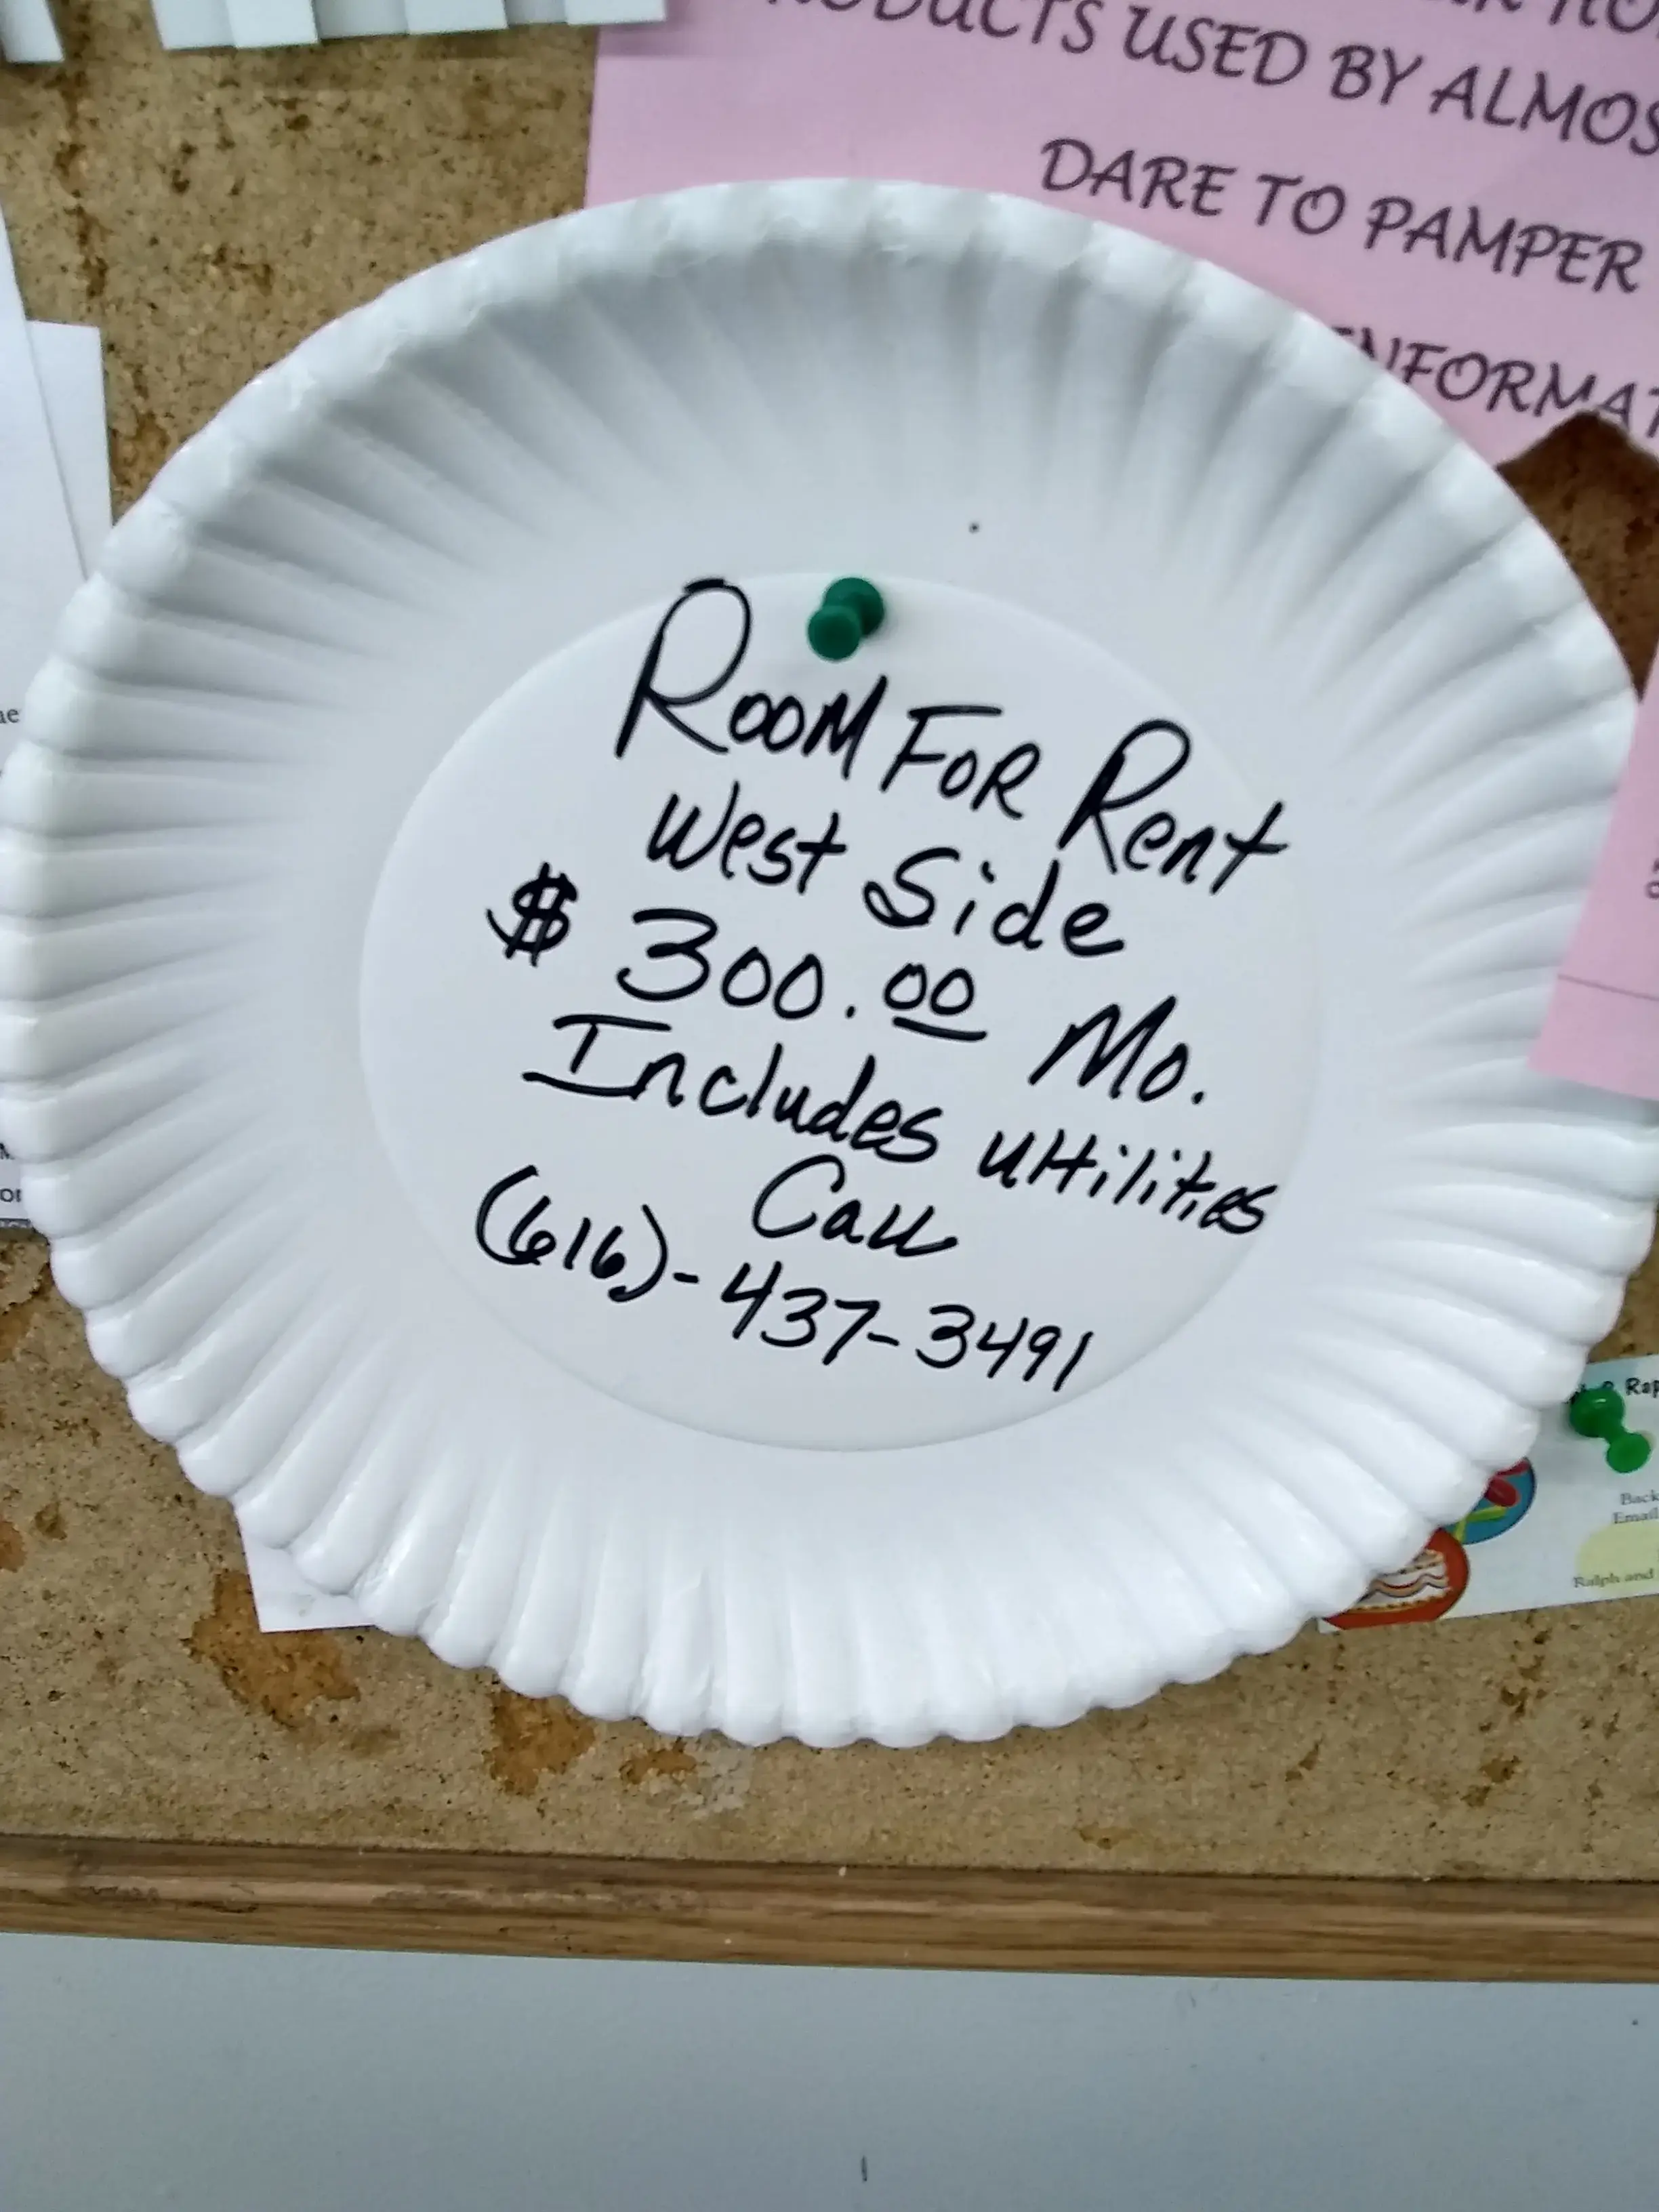 PRODUCTS USED BY ALMOS
DARE TO PAMPER
INFORMAT
ROOM FOR Rent
West Side
$ 300.00 Mo.
Includes Uttilities
Call
(616)-437-3491
Rap
Back
Email
Ralph and